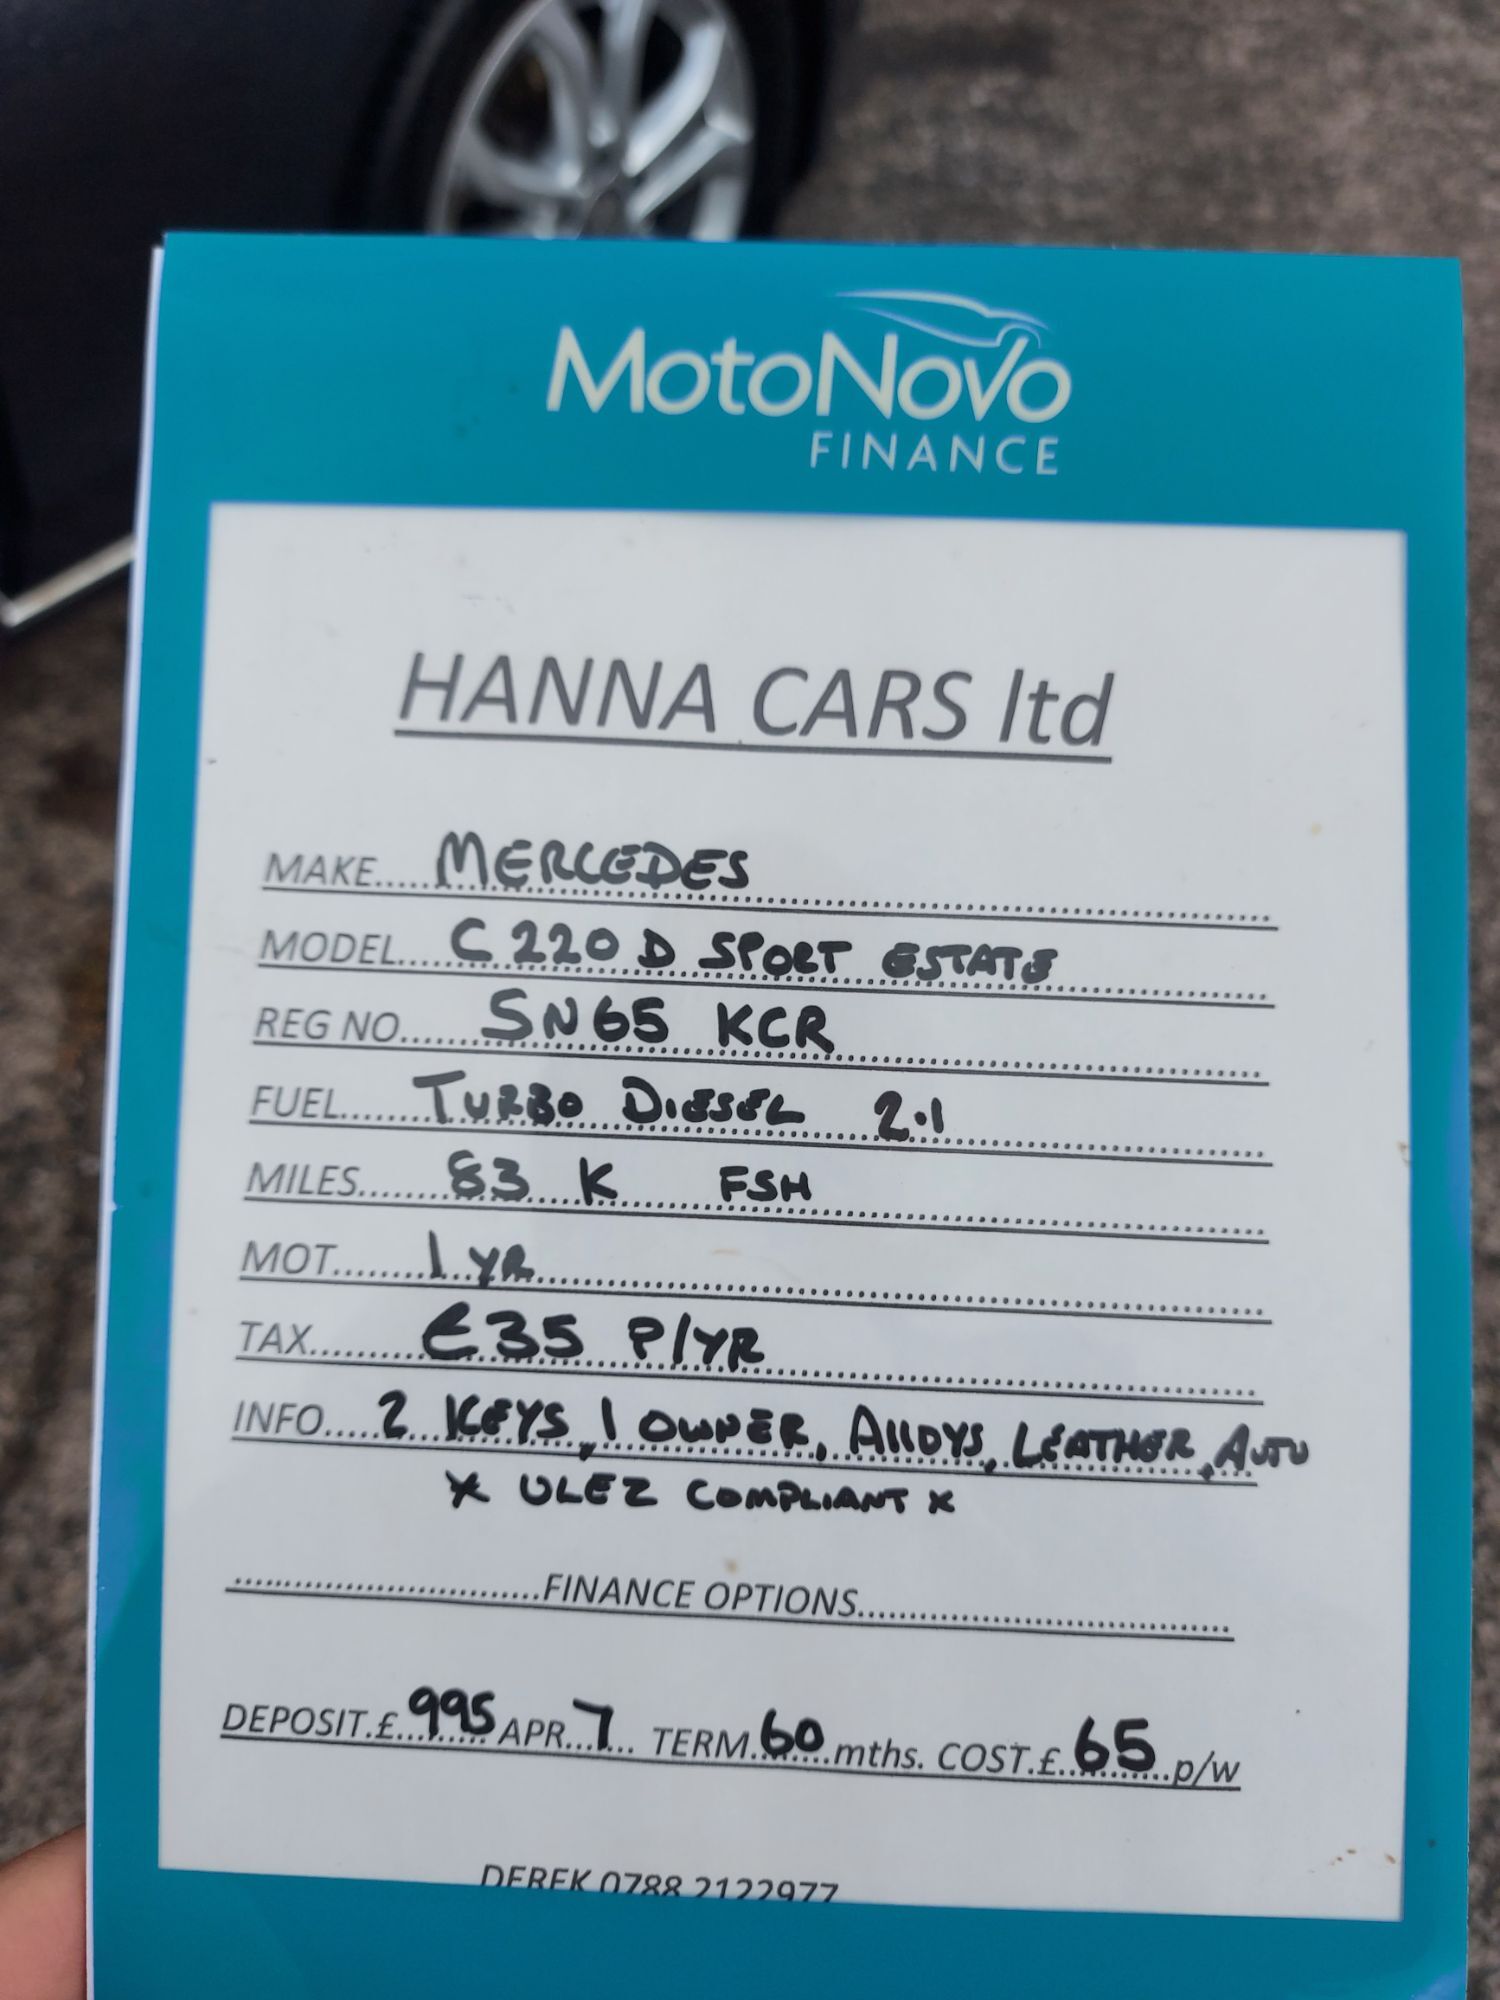 MotoNovo
FINANCE
HANNA CARS ltd
MAKE..... MERCEDES
MODEL.... C 220 D SPORT ESTATE
REG NO...... SN65 KCR
FUEL....... TURBO DIESEL 2.1
MILES....... 83 K FSH
MOT....... 1 YR
TAX........ £35 P/YR
INFO..... 2 KEYS, 1 OWNER, AllOYS, LEATHER, AUTO
* ULEZ COMPLIANT *
FINANCE OPTIONS
DEPOSIT.£..995 APR...7... TERM.60..mths. COST.£..65..p/w
DEREK 0788 2122977